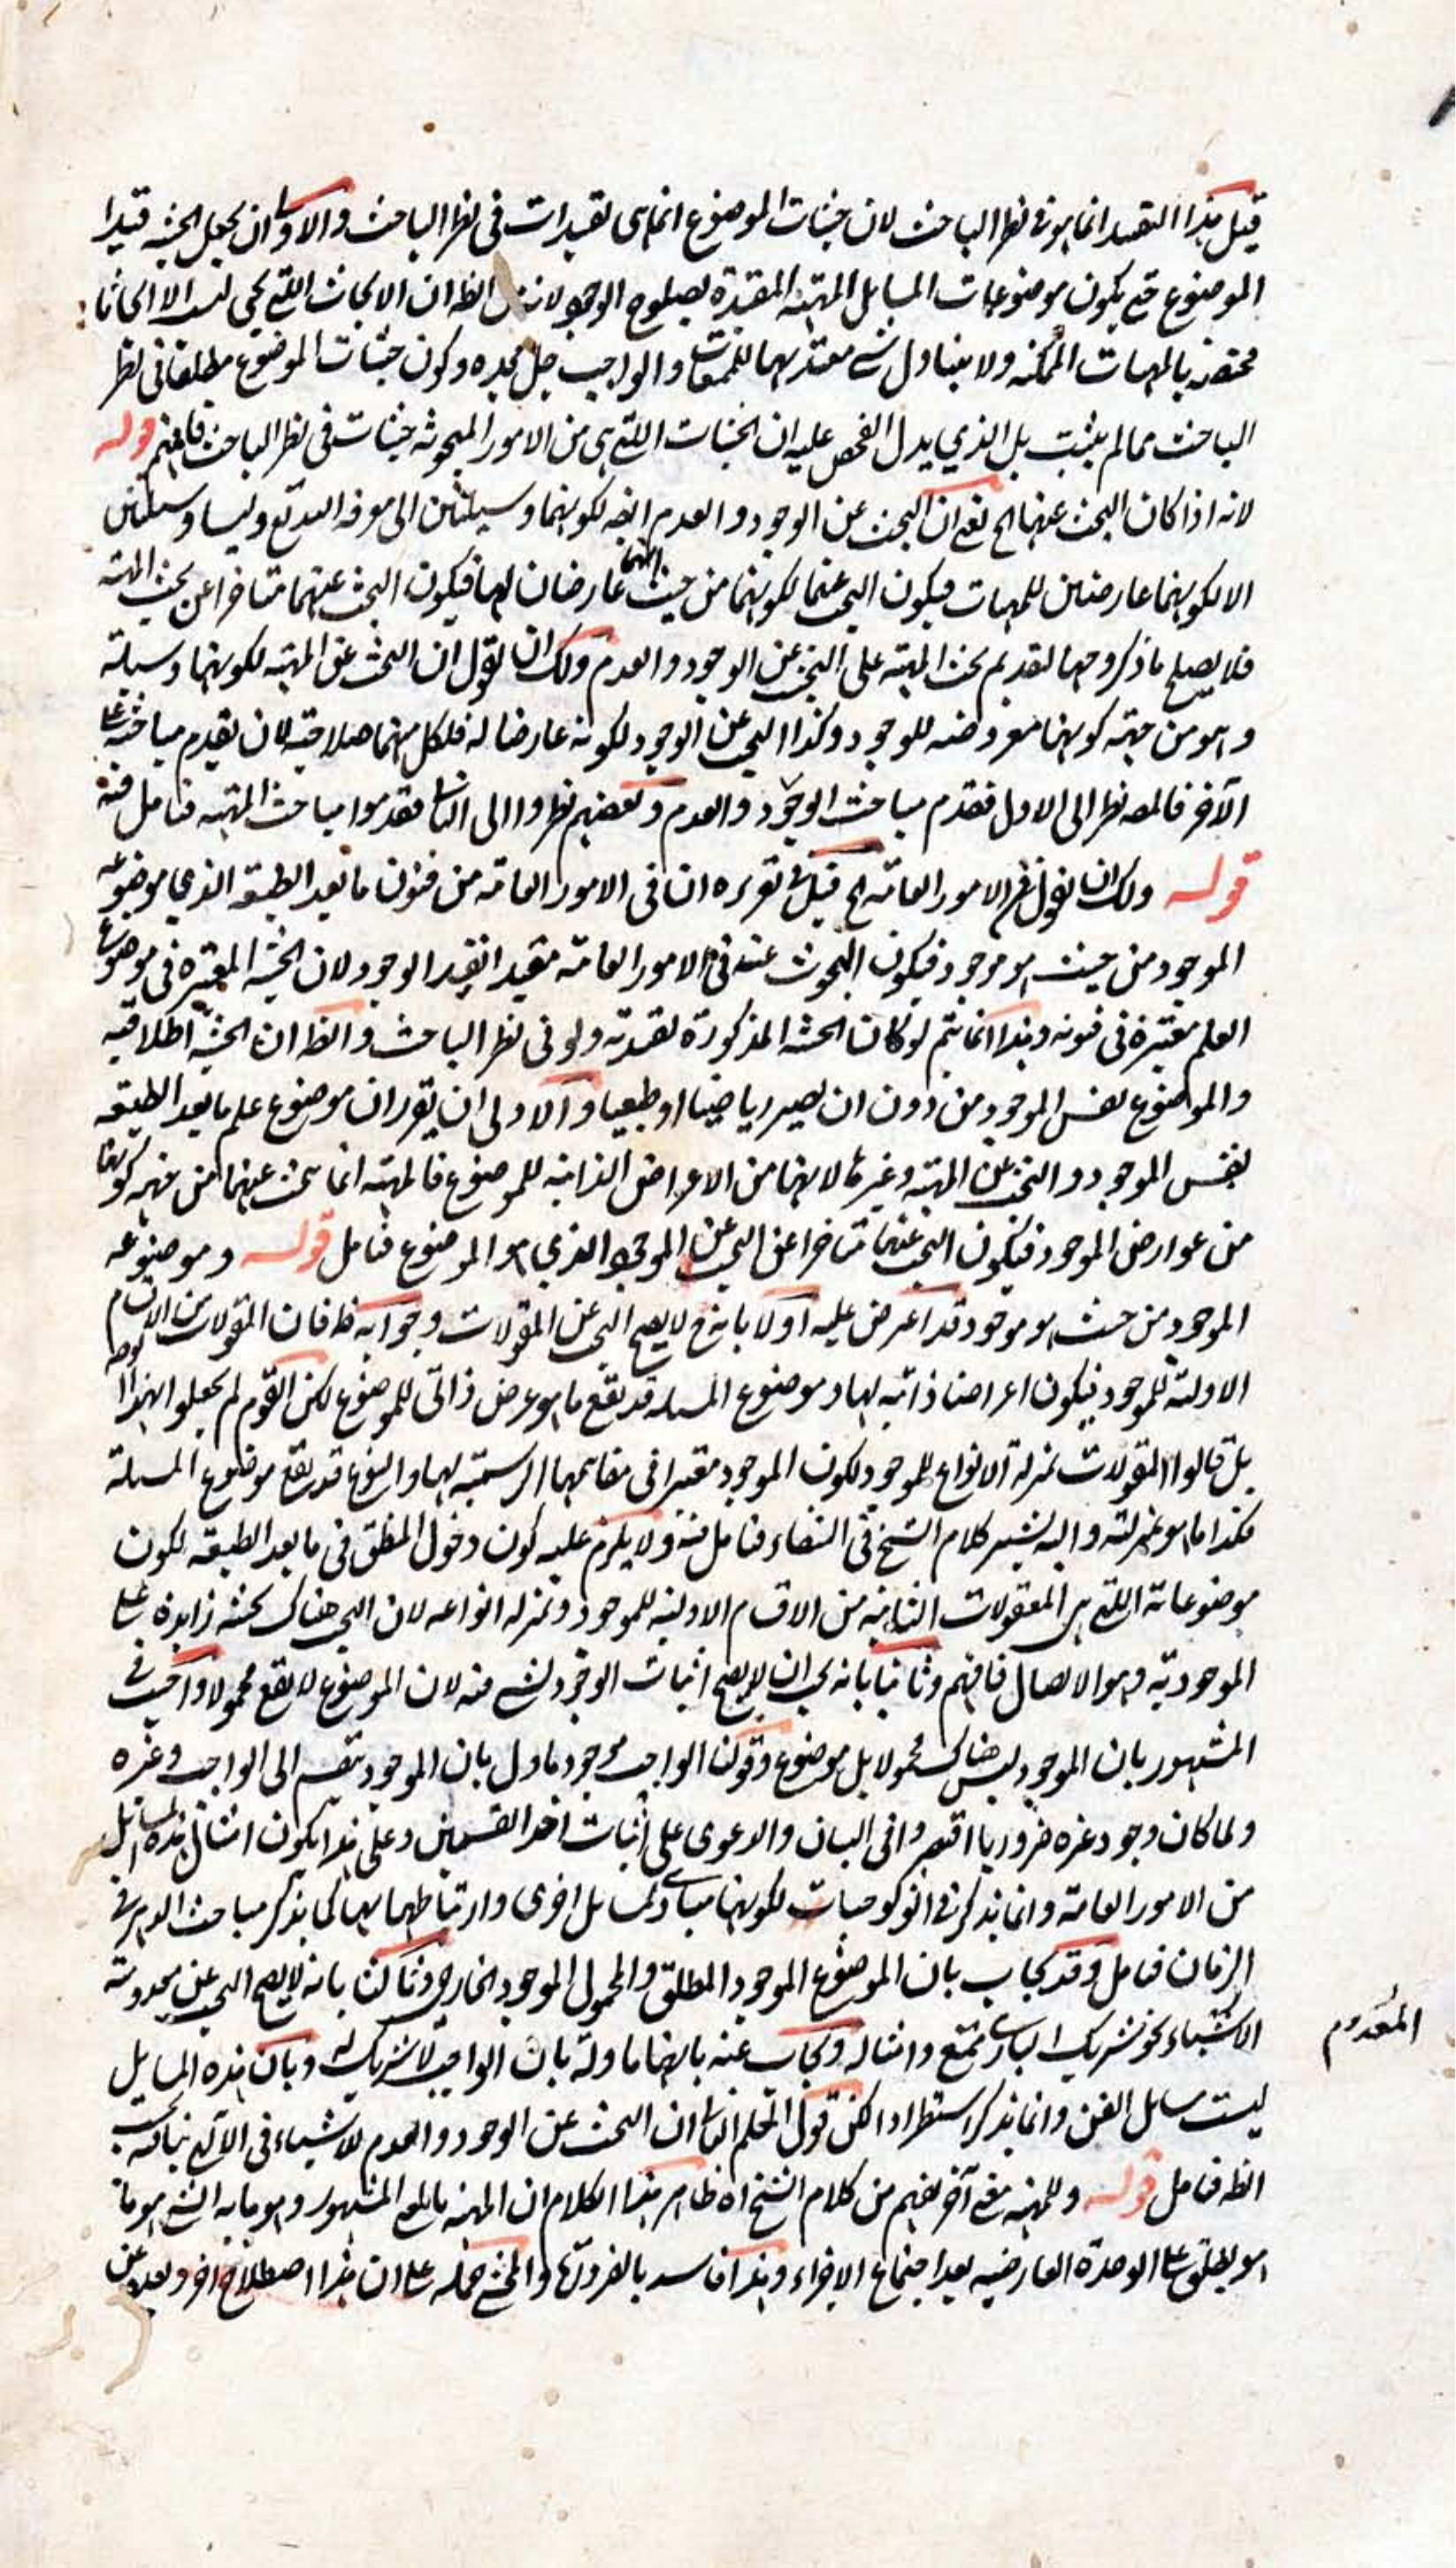 قيل هذا التقييد انما هو في نظر الباحث لان حيثيات الموضوع انما هى تقييدات فى نظر الباحث والاولى ان يجعل الحيثية قيدا
الموضوع حتى يكون موضوعات المسايل المهية المقيدة بصلوح الوجود لان الظ ان الابحاث اللتى يجئ ليست الا ابحاثا
مختصة بالمهيات الممكنة ولا يتناول شئ معتد بها للممتنعات والواجب جل مجده وكون حيثيات الموضوع مطلقا فى نظر
الباحث مما لم يثبت بل الذي يدل الفحص عليه ان الحيثيات اللتى هى من الامور المبحوثة حيثيات فى نظر الباحث فافهم قوله
لانه اذا كان البحث عنهما الخ يعنى ان البحث عن الوجود والعدم ايضه لكونهما وسيلتين الى معرفة وليسا وسيلتين
الا لكونهما عارضين للمهيات فيكون البحث عنهما لكونهما من حيث انهما عارضان لها فيكون البحث عنهما متاخرا عن بحث المهية
فلا يصلح ما ذكر وجها لتقديم بحث المهية على البحث عن الوجود والعدم ولك ان تقول ان البحث عن المهية لكونها وسيلة
وهو من جهة كونها معروضة للوجود وكذا البحث عن الوجود لكونه عارضا له فلكل منهما صلاحية لان يقدم مباحثه على
الآخر فالمصه نظر الى الاول فقدم مباحث الوجود والعدم وبعضهم نظروا الى الثانى فقدموا مباحث المهية فتامل فيه
قوله ولك ان تقول الامور العامة الخ قيل فى تقريره ان فى الامور العامة من فنون ما بعد الطبيعة الذي موضوعه
الموجود من حيث هو موجود فيكون المبحوث عنه فى الامور العامة مقيدا بقيد الوجود لان الحيثية المعتبرة فى موضوع
العلم معتبرة فى فنونه وهذا انما يتم لو كان الحيثية المذكورة تقييدية ولو فى نظر الباحث والظ ان الحيثية اطلاقية
والموضوع نفس الموجود من دون ان يصير رياضيا او طبعيا والاولى ان يقرر ان موضوع علم ما بعد الطبيعة
نفس الموجود والبحث عن المهية وغيرها لانها من الاعراض الذاتية للموضوع فالمهية انما يبحث عنها من جهة كونها
من عوارض الموجود فيكون البحث عنها متاخرا عن البحث عن الموجود الذي هو الموضوع فتامل قوله وموضوعه
الموجود من حيث هو موجود قد اعترض عليه اولا بانه ح لا يصح البحث عن المقولات وجوابه ظ فان المقولات من الاقسام
الاولية للموجود فيكون اعراضا ذاتية لها وموضوع المسله قد يقع ما هو عرض ذاتى للموضوع لكن القوم لم يجعلوا هذا
بل قالوا المقولات بمنزلة الانواع للموجود لكون الموجود معتبرا فى مفاهيمها الرسمية لها والنوع قد يقع موضوع المسئلة
فكذا ما هو بمنزلته واليه يشير كلام الشيخ فى الشفاء فتامل فيه ولا يلزم عليه كون دخول المنطق فى ما بعد الطبيعة لكون
موضوعاته اللتى هى المعقولات الثانية من الاقسام الاولية للموجود وبمنزلة انواعه لان البحث هناك بحيثية زايدة على
الموجودية وهو الايصال فافهم وثانيا بانه يجب ان لا يصح اثبات الوجود لشئ منه لان الموضوع لا يقع محمولا واجيب فى
المشهور بان الموجود ليس هناك محمولا بل موضوع وقولنا الواجب موجود ماول بان الموجود ينقسم الى الواجب وغيره
ولما كان وجود غيره ضروريا فى البيان والدعوى على اثبات احد القسمين وعلى هذا يكون امثال هذه المسايل
من الامور العامة وانما يذكر فى اثولوجيات لكونها مبادى لمسايل اخرى وارتباطها بها كما يذكر مباحث الدهر فى
الزمان فتامل وقد يجاب بان الموضوع الموجود المطلق والمحمول الموجود الخارجى وثالثا بانه لا يصح البحث عن معدومية
الاشياء نحو شريك البارى ممتنع وامثاله ويجاب عنه بانها ماولة بان الواجب لا شريك له وبان هذه المسايل
ليست مسايل الفن وانما يذكر استطرادا لكن قول المعلم الثانى ان البحث عن الوجود والعدم للاشياء فى الآلهى
الظ فتامل قوله وللمهية معنى آخر يفهم من كلام الشيخ اه ظاهر هذا الكلام ان المهية بالمعنى المشهور وهو ما به الشئ هو ما
هو يطلق على الوحدة العارضية بعد اجتماع الاجزاء وهذا فاسد بالضرورة والمحشى حمله على ان هذا اصطلاح آخر
المعدوم